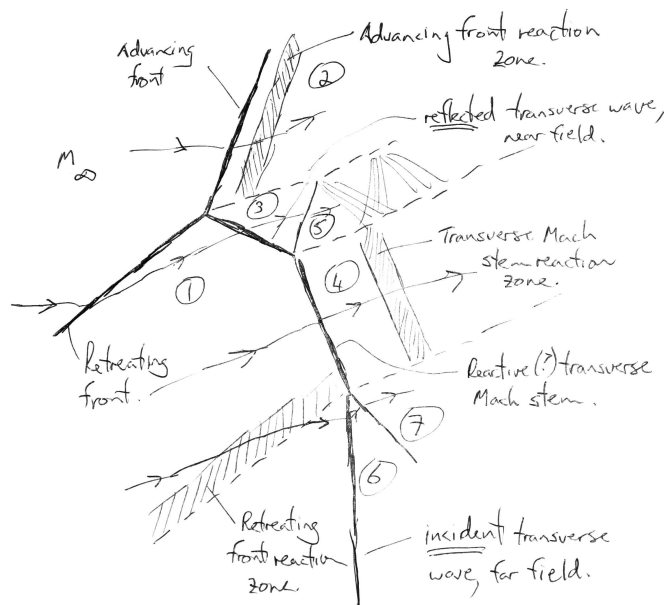 Advancing
front
Advancing front reaction
zone.
②
M∞
reflected transverse wave,
near field.
③
⑤
①
④
Transverse Mach
stem reaction
zone.
Retreating
front.
Reactive (?) transverse
Mach stem.
⑦
⑥
Retreating
front reaction
zone.
incident transverse
wave, far field.